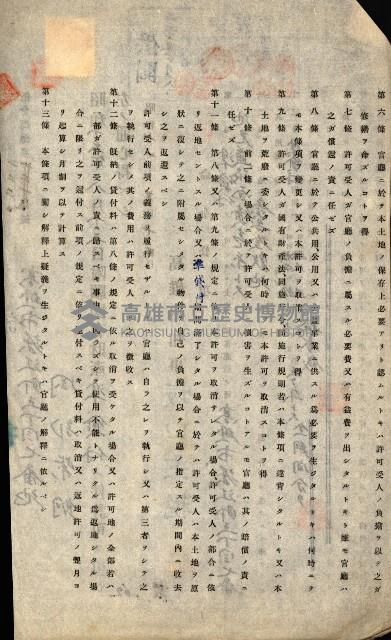 第六條　官廳ニ於テ土地ノ保存上必要アリト認ムルトキハ許可受人ノ負擔ヲ以テ之ガ
修繕ヲ命ズルコトヲ得
第七條　許可受人ガ官廳ノ負擔ニ屬スル必要費又ハ有益費ヲ出シタルトキト雖モ官廳ハ
之ガ償還ノ責ニ任ゼズ
第八條　官廳ニ於テ公共用公用又ハ公益事業ニ供スル爲必要ヲ生ジタルトキハ何時ニテ
モ本條項ヲ變更シ又ハ本許可ヲ取消スコトヲ得
第九條　許可受人ガ國有財產法同施行令同施行規則若ハ本條項ニ違背シタルトキ又ハ本
土地ヲ荒廢ニ委シタルトキハ何時ニテモ本許可ヲ取消スコトヲ得
第十條　前二條ノ場合ニ於テ許可受人ニ損害ヲ生ズルコトアルモ官廳ハ其ノ賠償ノ責ニ
任ゼズ
第十一條　第八條又ハ第九條ノ規定ニ依リ本許可ヲ取消シタル場合、許可受人ノ都合ニ依
リ返地セントスル場合又ハ期間滿了シタル場合ニ於テハ許可受人ハ本土地ヲ原
狀ニ復シ之ニ附屬セシメタル物件ハ自己ノ負擔ヲ以テ官廳ノ指定スル期間內ニ收去
シ之ヲ返還スベシ
許可受人前項ノ義務ヲ履行セザルトキハ官廳ハ自ラ之レヲ執行シ又ハ第三者ヲシテ之
ヲ執行セシメ其ノ費用ハ許可受人ヨリ之ヲ徵收ス
第十二條　旣納ノ貸付料ハ第八條ノ規定ニ依ル取消ヲ受ケタル場合又ハ許可地ノ全部若ハ
一部ガ許可受人ノ責ニ歸スベキ事由ニ因ラズシテ使用不能トナリタル爲返地シタル場
合ニ限リ之ヲ還付ス前項ノ規定ニ依リ還付スベキ貸付料ハ取消又ハ返地許可ノ翌月ヨ
リ起算シ月割ヲ以テ計算ス
第十三條　本條項ニ關シ解釋上疑義ヲ生ジタルトキハ官廳ノ解釋ニ依ルベシ
高雄市立歷史博物館
KAOHSIUNG MUSEUM OF HISTORY